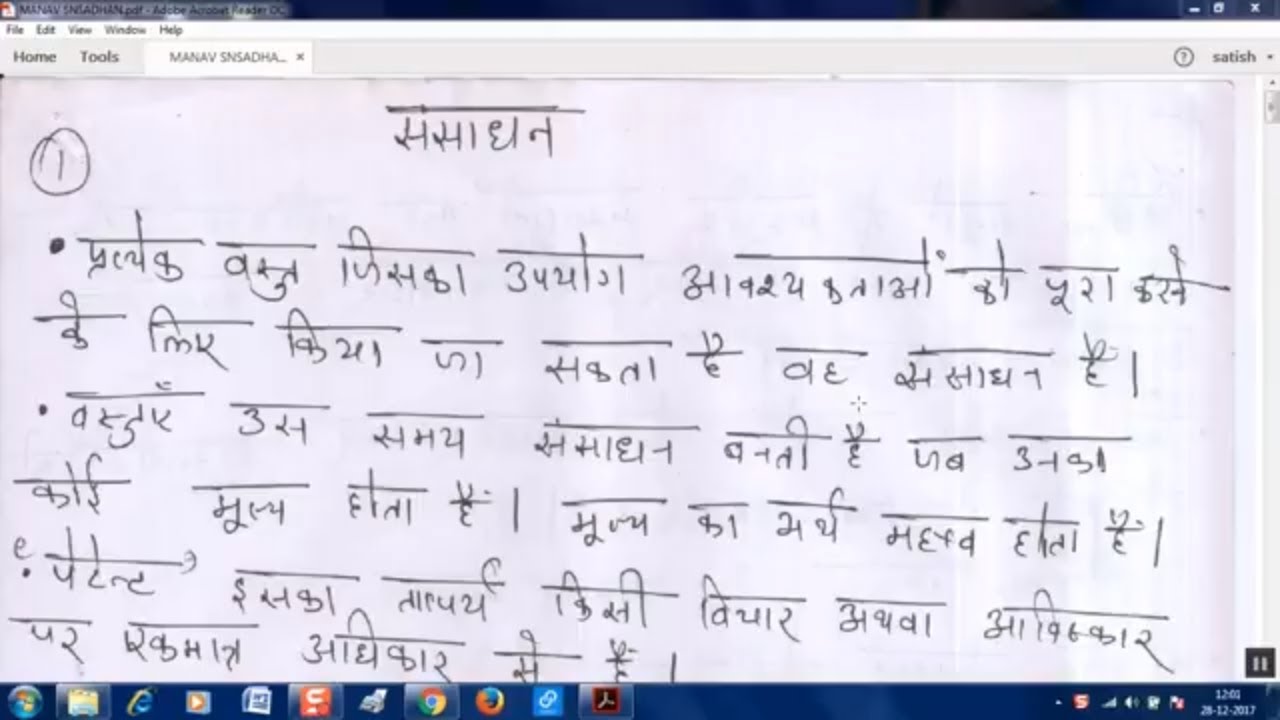 MANAV SNSADHAN.pdf - Adobe Acrobat Reader DC
File Edit View Window Help
Home Tools MANAV SNSADHA... × ? satish
संसाधन
1
• प्रत्येक वस्तु जिसका उपयोग आवश्यकताओं को पूरा करने
के लिए किया जा सकता है वह संसाधन है।
• वस्तुएँ उस समय संसाधन बनती है जब उनका
कोई मूल्य होता है। मूल्य का अर्थ महत्व होता है।
• पेटेन्ट इसका तात्पर्य किसी विचार अथवा आविष्कार
पर एकमात्र अधिकार से है।
12:01
28-12-2017